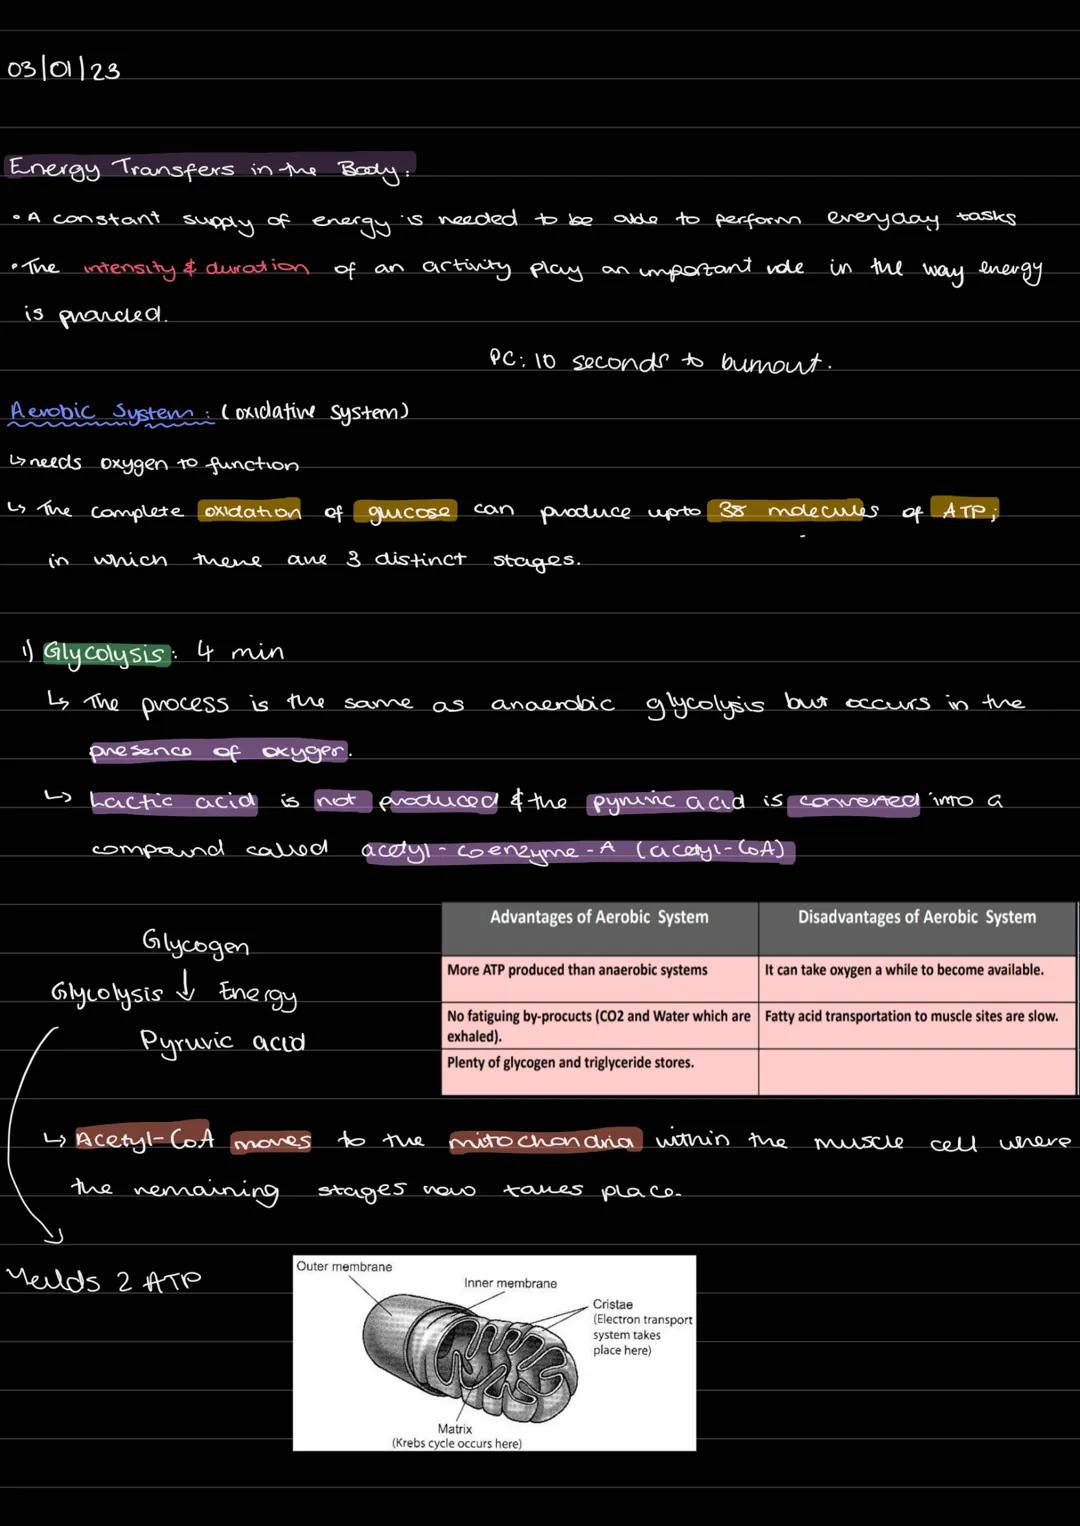 03/01/23
Energy Transfers in the Body:
• A constant supply of energy is needed to be able to perform everyday tasks
• The intensity & duration of an activity play an important role in the way energy
is provided.
PC: 10 seconds to burnout.
Aerobic System: (oxidative system)
↳ needs oxygen to function
↳ The complete oxidation of glucose can produce upto 38 molecules of ATP;
in which there are 3 distinct stages.
1) Glycolysis: 4 min
↳ The process is the same as anaerobic glycolysis but occurs in the
presence of oxygen.
↳ Lactic acid is not produced & the pyruvic acid is converted into a
compound called acetyl-coenzyme-A (acetyl-CoA)
Glycogen
Glycolysis ↓ Energy
Pyruvic acid
Advantages of Aerobic System
Disadvantages of Aerobic System
More ATP produced than anaerobic systems
It can take oxygen a while to become available.
No fatiguing by-procucts (CO2 and Water which are
exhaled).
Fatty acid transportation to muscle sites are slow.
Plenty of glycogen and triglyceride stores.
↳ Acetyl-CoA moves to the mitochondria within the muscle cell where
the remaining stages now takes place.
Yeilds 2 ATP
Outer membrane
Inner membrane
Cristae
(Electron transport
system takes
place here)
Matrix
(Krebs cycle occurs here)